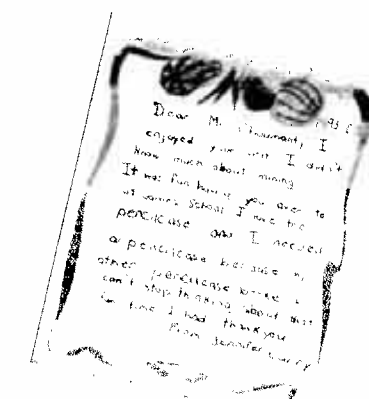 Dear M.
enjoyed your visit I didn't
know much about mining
It was fun having you over to
school I love the
pencilcase and I needed
a pencilcase because my
other pencilcase broke I
can't stop thinking about that
fun time I had thank you
From Jennifer